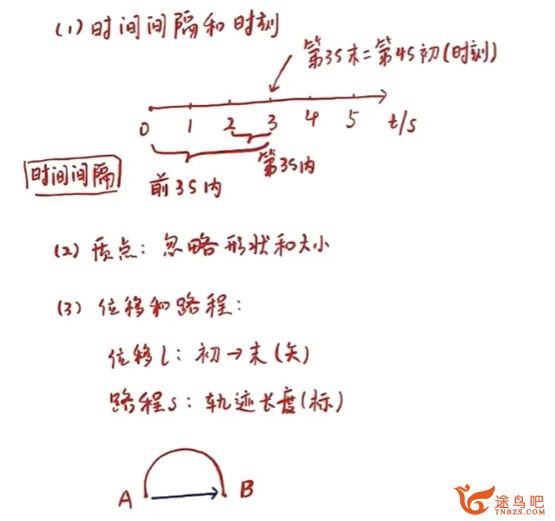 (1) 时间间隔和时刻
第3s末=第4s初(时刻)
0 1 2 3 4 5 t/s
时间间隔
前3s内
第3s内
(2) 质点: 忽略形状和大小
(3) 位移和路程:
位移l: 初→末(矢)
路程s: 轨迹长度(标)
A B
途鸟吧
TNBZS.COM